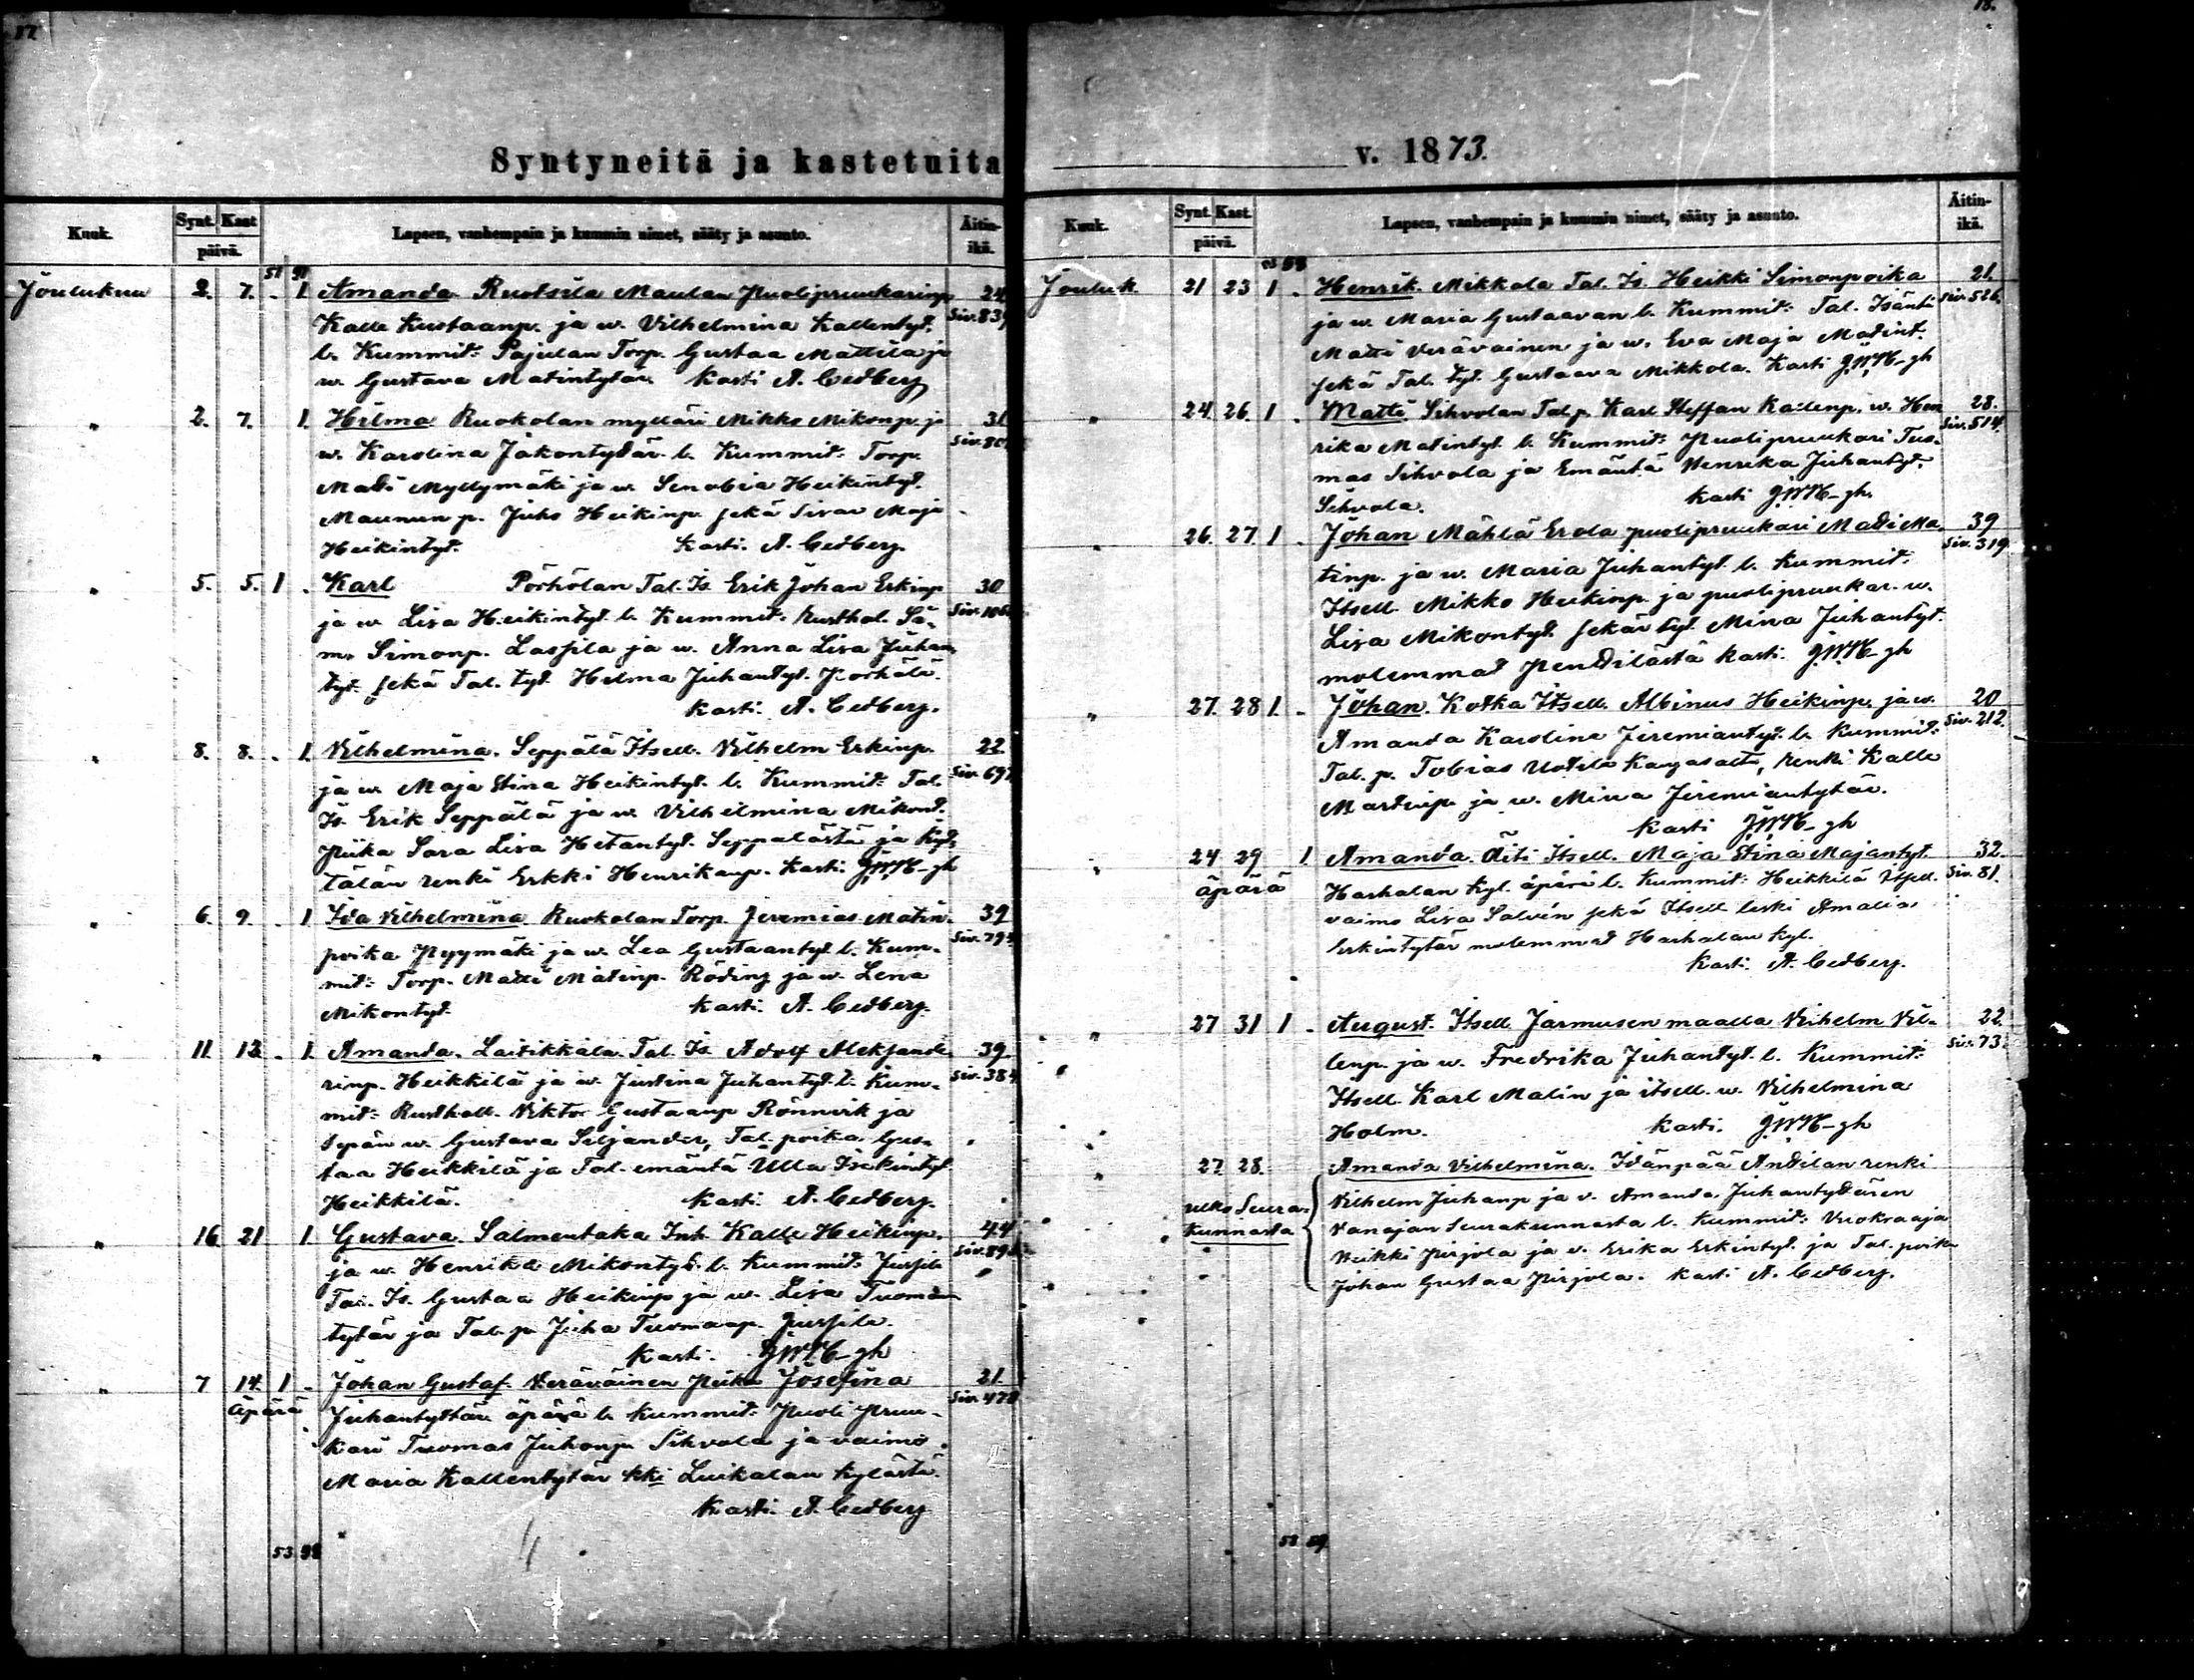 17.
Syntyneitä ja kastetuita
Kuuk.
Synt. Kast.
päivä.
Lapsen, vanhempain ja kummin nimet, sääty ja asunto.
Äitin-
ikä.
51
Joulukuu 2. 7. . 1. Amanda Ruotsila Maulan Puolipruukarinp 24
Kalle Kustaanp. ja w. Vilhelmina Kallentyt. Siv. 839
l. Kummit: Pajulan Torp. Gustaa Mattila ja
w. Gustava Matintytär. Kasti A. Cedberg
" 2. 7. 1. Hilma Ruokolan mylläri Mikko Mikonp. ja 31
w. Karolina Jakontytär l. Kummit: Torp. Siv. 80
Matti Myllymäki ja w. Senobia Heikintyt.
Maunun p. Juho Heikinp. sekä Sisar Maja
Heikintyt. Kasti. A. Cedberg.
" 5. 5. 1 . Karl Pörhölän Tal. Is. Erik Johan Erkinp 30
ja w. Lisa Heikintyt. l. Kummit: Rusthol. Sa-
m. Simonp. Lassila ja w. Anna Lisa Juhan
tyt. sekä Tal. tyt. Helma Juhantyt. Pörhölä.
Kasti. A. Cedberg.
" 8. 8. . 1. Vilhelmina. Seppälä Itsell. Vilhelm Erkinp. 22
ja w. Maja Stina Heikintyt. l. Kummit: Tal. Siv. 697
Is. Erik Seppälä ja w. Vilhelmina Mikont.
Piika Sara Lisa Hetantyt. Seppälästä ja Kyt-
tälän renki Erkki Henrikanp. Kasti. GWH-gh
" 6. 9. . 1 Ida Vilhelmina. Ruokolan Torp. Jeremias Matin- 39
poika Pyymäki ja w. Lea Gustaantyt l. Kum- Siv. 794
mit: Torp. Matti Matinp. Röding ja w. Lena
Mikontyt. Kasti. A. Cedberg.
" 11. 12. . 1. Amanda. Laitikkala. Tal. Is. Adolf Aleksande- 39.
rinp. Heikkilä ja w. Justina Juhantyt. l. Kum- Siv. 384
mit: Rusthall. Viktor Gustaanp Rönnvik ja
Sepän w. Gustava Siljander, Tal. poika Gus-
taa Heikkilä ja Tal. emäntä Ulla Isakintyt
Heikkilä. Kasti. A. Cedberg.
" 16 21 1 Gustava. Salmentaka Inh. Kalle Heikinp. 44
ja w. Henrika Mikontyt. l. Kummit: Jussila
Tal. Is. Gustaa Heikinp ja w. Lisa Tuoman
tytär ja Tal. p. Juha Tuomaanp. Jussila.
Kasti. GWH-gh
" 7 14. 1 - Johan Gustaf. Keräväinen Piika Josefina 21.
äpärä Juhantyttären äpärä l. Kummit: Puoli pruu- Siv. 478
kari Tuomas Juhanp. Sihvola ja vaimo
Maria Kallentytär kki Luikalan kylästä.
Kasti. A. Cedberg
53 98
18.
v. 1873.
Kuuk.
Synt. Kast.
päivä.
Lapsen, vanhempain ja kummin nimet, sääty ja asunto.
Äitin-
ikä.
Jouluk. 21 23 1 . Henrik. Mikkola Tal. Is. Heikki Simonpoika 21.
ja w. Maria Gustaavan l. Kummit: Tal. Isäntä Siv. 526.
Matti Verävainen ja w. Eva Maja Matint.
sekä Tal. tyt. Gustaava Mikkola. Kasti GWH-gh
" 24. 26. 1 . Matti. Sihvolan Tal. p. Karl Steffan Kallenp. w. Hen 28.
rika Matintyt. l. Kummit: Puolipruukari Tuo- Siv. 514.
mas Sihvola ja Emäntä Henrika Juhantyt.
Sihvola. Kasti GWH-gh.
" 26. 27. 1 . Johan Mählä Erola puolipruukari Matti Ma 39
tinp. ja w. Maria Juhantyt. l. Kummit: Siv. 319
Itsell. Mikko Heikinp. ja puolipruukar. w.
Lisa Mikontyt. sekä tyt. Mina Juhantyt.
molemmat Penttilästä Kasti. GWH-gh
" 27. 28 1. . Johan. Kotka Itsell. Albinus Heikinp. ja w. 20
Amanda Karolina Jeremiantyt. l. Kummit: Siv. 212.
Tal. p. Tobias Uotila Kangasalta, renki Kalle
Martinp. ja w. Mina Jeremiantytär.
Kasti GWH-gh
" 24 29 1. Amanda. Äiti Itsell. Maja Stina Majantyt. 32.
äpärä Harhalan kyl. äpärä l. Kummit: Heikkilä Itsell. Siv. 81.
vaimo Lisa Salvén sekä Itsell. leski Amalia
Erkintytär molemmat Harhalan kyl.
Kasti. A. Cedberg.
" 27 31 1 . August. Itsell. Jarmusen maalla Vilhelm Vil- 22.
lenp. ja w. Fredrika Juhantyt. l. Kummit:
Itsell. Karl Malin ja itsell. w. Vilhelmina
Holm. Kasti. GWH-gh
" 27. 28. Amanda Vilhelmina. Itänpää Anttilan renki
ulko Seura- Vilhelm Juhanp ja v. Amanda Juhantyttären
kunnasta Vanajan Seurakunnasta l. Kummit: Vuokraaja
Heikki Pirjola ja v. Erika Erkintyt. ja Tal. poika
Johan Gustaa Pirjola. Kasti A. Cedberg.